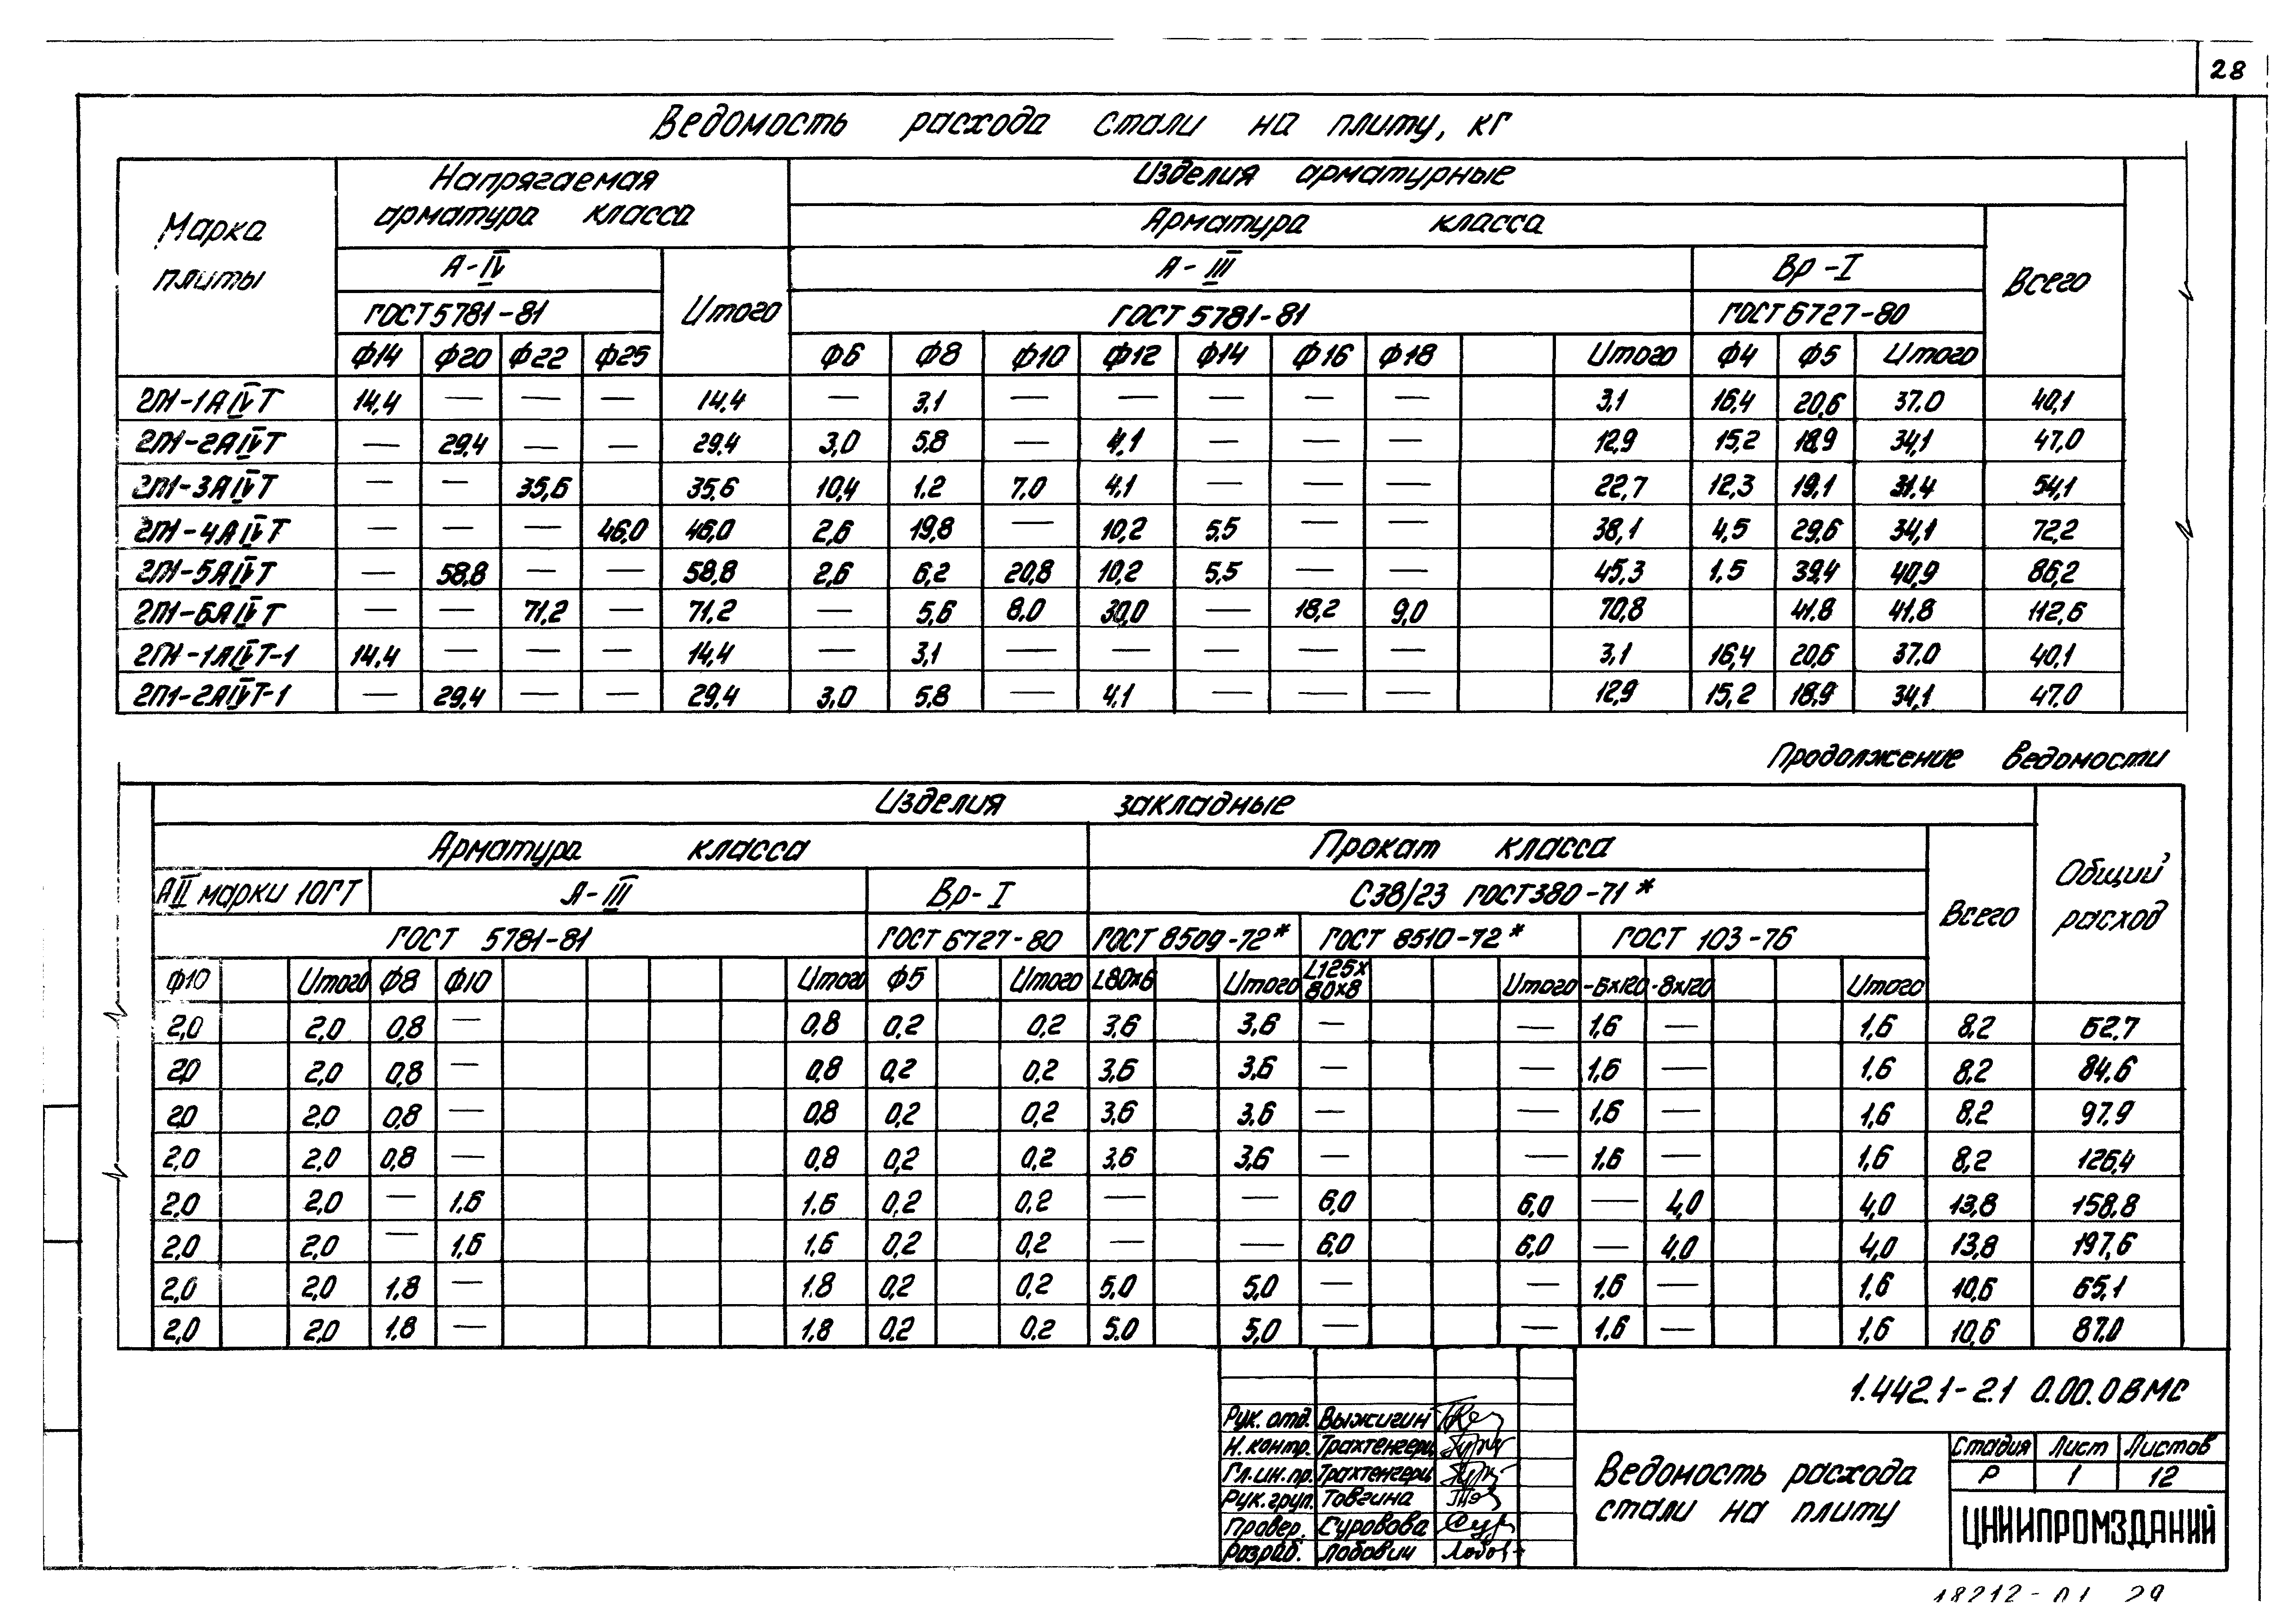 28
Ведомость расхода стали на плиту, кг
Марка плиты
Напрягаемая арматура класса
Изделия арматурные
Арматура класса
А-IV
Итого
А-III
Вр-I
Всего
ГОСТ 5781-81
ГОСТ 5781-81
ГОСТ 6727-80
Ф14 Ф20 Ф22 Ф25 Ф6 Ф8 Ф10 Ф12 Ф14 Ф16 Ф18 Итого Ф4 Ф5 Итого
2П1-1АIVТ 14,4 — — — 14,4 — 3,1 — — — — — 3,1 16,4 20,6 37.0 40,1
2П1-2АIVТ — 29,4 — — 29,4 3,0 5,8 — 4,1 — — — 12,9 15,2 18,9 34,1 47,0
2П1-3АIVТ — — 35,6 35,6 10,4 1.2 7.0 4.1 — — — 22,7 12,3 19,1 31.4 54,1
2П1-4АIVТ — — — 46,0 46,0 2,6 19,8 — 10,2 5,5 — — 38,1 4,5 29,6 34,1 72,2
2П1-5АIVТ — 58,8 — — 58,8 2,6 6,2 20,8 10,2 5,5 — — 45,3 1,5 39,4 40,9 86,2
2П1-6АIVТ — — 71,2 — 71,2 — 5,6 8,0 30,0 — 18,2 9,0 70,8 41.8 41,8 112,6
2П1-1АIVТ-1 14,4 — — — 14,4 — 3,1 — — — — — 3,1 16,4 20,6 37.0 40,1
2П1-2АIVТ-1 — 29,4 — — 29,4 3,0 5,8 — 4,1 — — — 12,9 15,2 18,9 34,1 47.0
Продолжение ведомости
Изделия закладные
Общий расход
Арматура класса
Прокат класса
Всего
АII марки 10ГТ
А-III
Вр-I
С38/23 ГОСТ380-71*
ГОСТ 5781-81
ГОСТ 6727-80
ГОСТ 8509-72*
ГОСТ 8510-72*
ГОСТ 103-76
Ф10 Итого Ф8 Ф10 Итого Ф5 Итого L80х6 Итого L125х80х8 Итого -6х120 -8х120 Итого
2,0 2,0 0,8 — 0,8 0,2 0,2 3,6 3,6 — — 1,6 — 1,6 8,2 62,7
2,0 2,0 0,8 — 0,8 0,2 0,2 3,6 3,6 — — 1,6 — 1.6 8,2 84,6
2,0 2,0 0,8 — 0,8 0,2 0,2 3,6 3,6 — — 1,6 — 1,6 8,2 97,9
2,0 2,0 0,8 — 0,8 0,2 0,2 3,6 3,6 — — 1,6 — 1,6 8,2 126,4
2,0 2,0 — 1,6 1.6 0,2 0,2 — — 6,0 6,0 — 4,0 4,0 13,8 158,8
2,0 2,0 — 1,6 1,6 0,2 0,2 — — 6,0 6,0 — 4,0 4,0 13,8 197,6
2,0 2,0 1,8 — 1.8 0,2 0,2 5,0 5,0 — — 1,6 — 1,6 10,6 65,1
2,0 2,0 1,8 — 1,8 0,2 0,2 5,0 5,0 — — 1,6 — 1,6 10,6 87,0
1.442.1-2.1 0.00.0ВМС
Рук. отд. Выжигин
Н. контр. Трахтенгерц
Гл. ин. пр. Трахтенгерц
Рук. груп. Товгина
Провер. Суровова
Разраб. Лобович
Ведомость расхода стали на плиту
Стадия Лист Листов
Р 1 12
ЦНИИПРОМЗДАНИЙ
18212-01 29